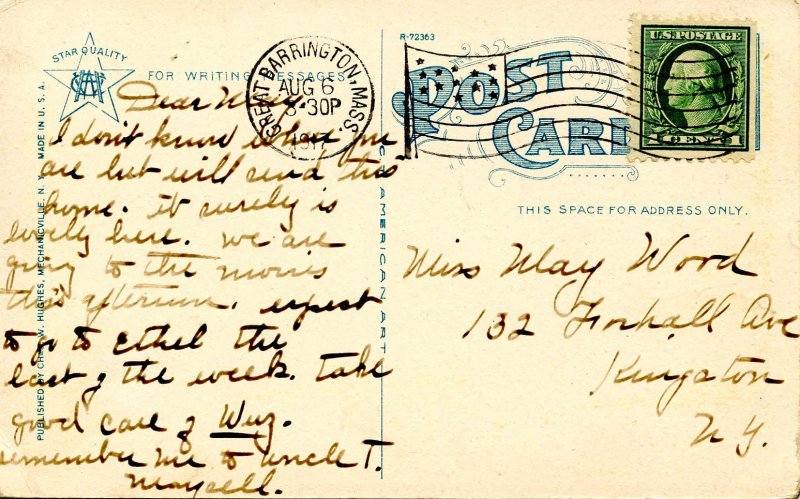 STAR QUALITY
FOR WRITING MESSAGES
Dear May.
I don't know where you
are but will send this
home. it surely is
lovely here. we are
going to the movies
this afternoon. expect
to go to Ethel the
last of the week. take
good care of Wuz.
remember me to uncle T.
Maycell.
PUBLISHED BY W. HUGHES, MECHANICVILLE, N.Y. MADE IN U.S.A.
AMERICAN ART
R-72363
GREAT BARRINGTON, MASS.
AUG 6
30P
POST
CARD
U.S. POSTAGE
1 CENT 1
THIS SPACE FOR ADDRESS ONLY.
Miss May Wood
132 Foxhall Ave
Kingston
N.Y.